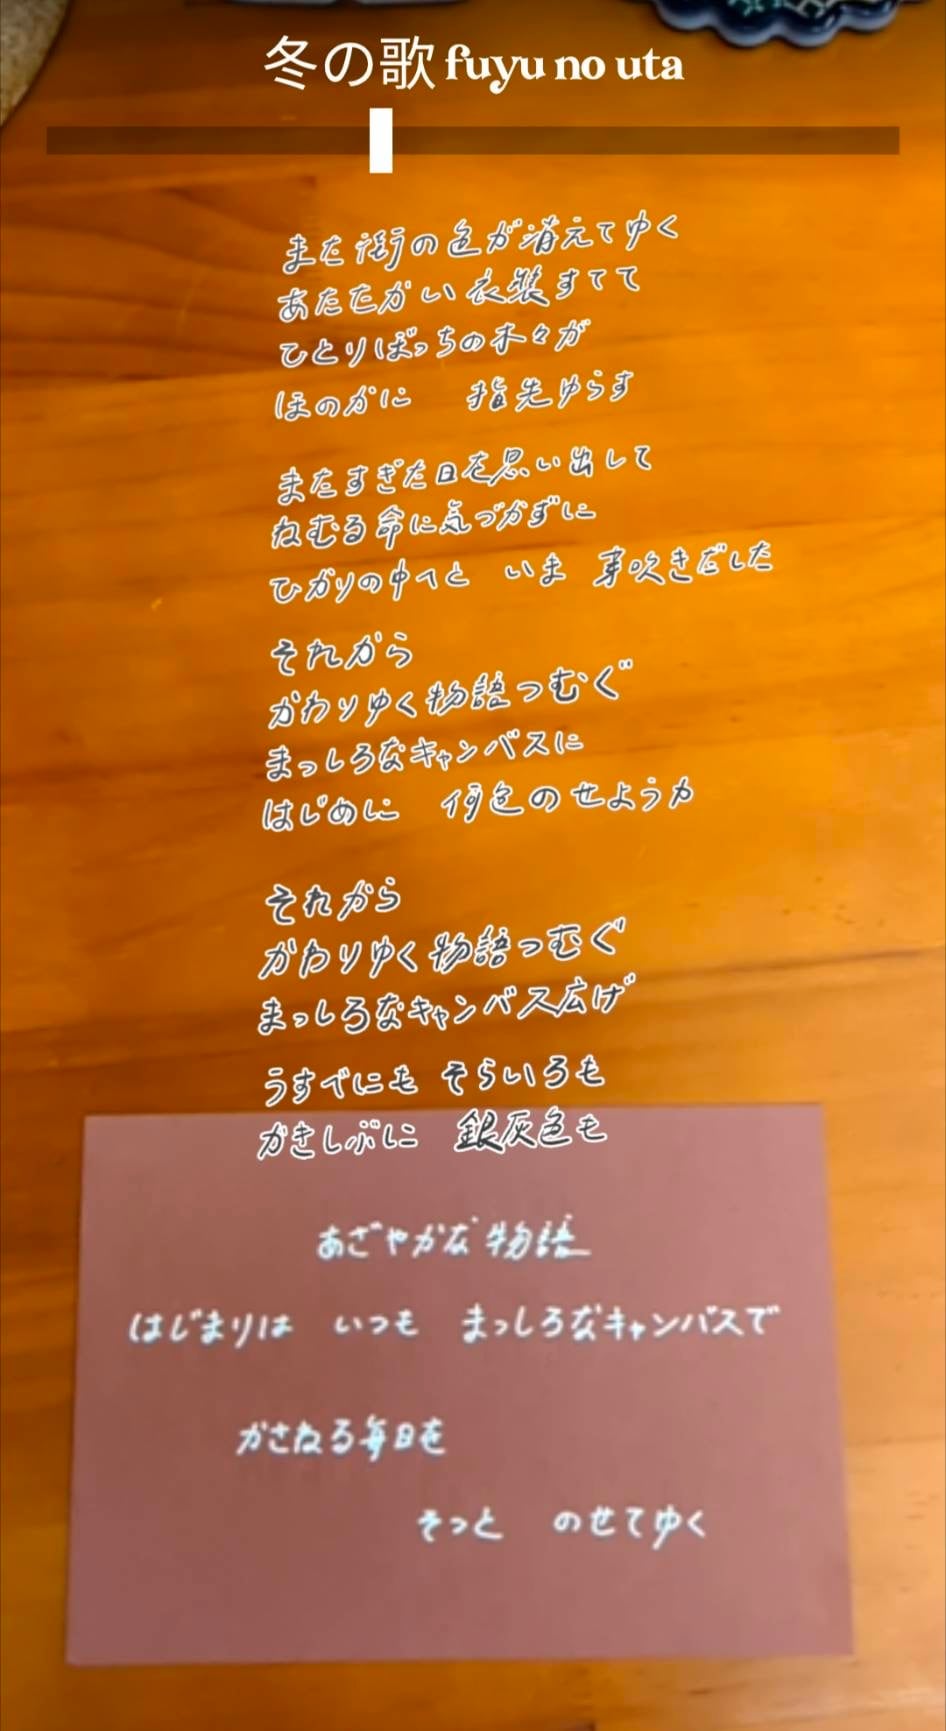 冬の歌 fuyu no uta
また街の色が消えてゆく
あたたかい衣装すてて
ひとりぼっちの木々が
ほのかに 指先ゆらす
またすぎた日を思い出して
ねむる命に気づかずに
ひかりの中へと いま 芽吹きだした
それから
かわりゆく物語つむぐ
まっしろなキャンバスに
はじめに 何色のせようか
それから
かわりゆく物語つむぐ
まっしろなキャンバス広げ
うすべにも そらいろも
かきしぶに 銀灰色も
あざやかな物語
はじまりは いつも まっしろなキャンバスで
かさねる毎日を
そっと のせてゆく